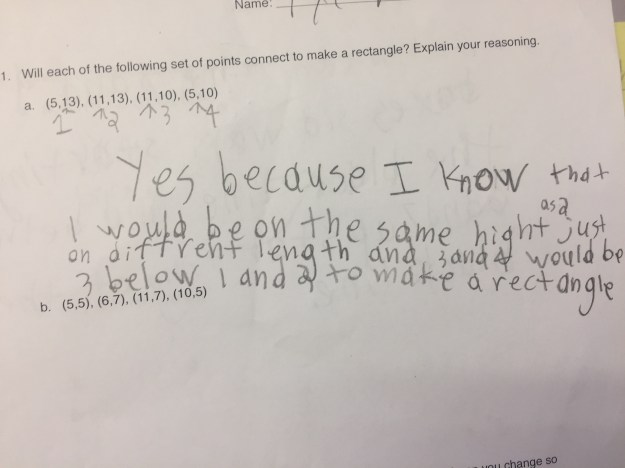 Name:
1. Will each of the following set of points connect to make a rectangle? Explain your reasoning.
a. (5,13), (11,13), (11,10), (5,10)
1 2 3 4
Yes because I know that
1 would be on the same hight as 2 just
on diffrent length and 3 and 4 would be
3 below 1 and 2 to make a rectangle
b. (5,5), (6,7), (11,7), (10,5)
you change so